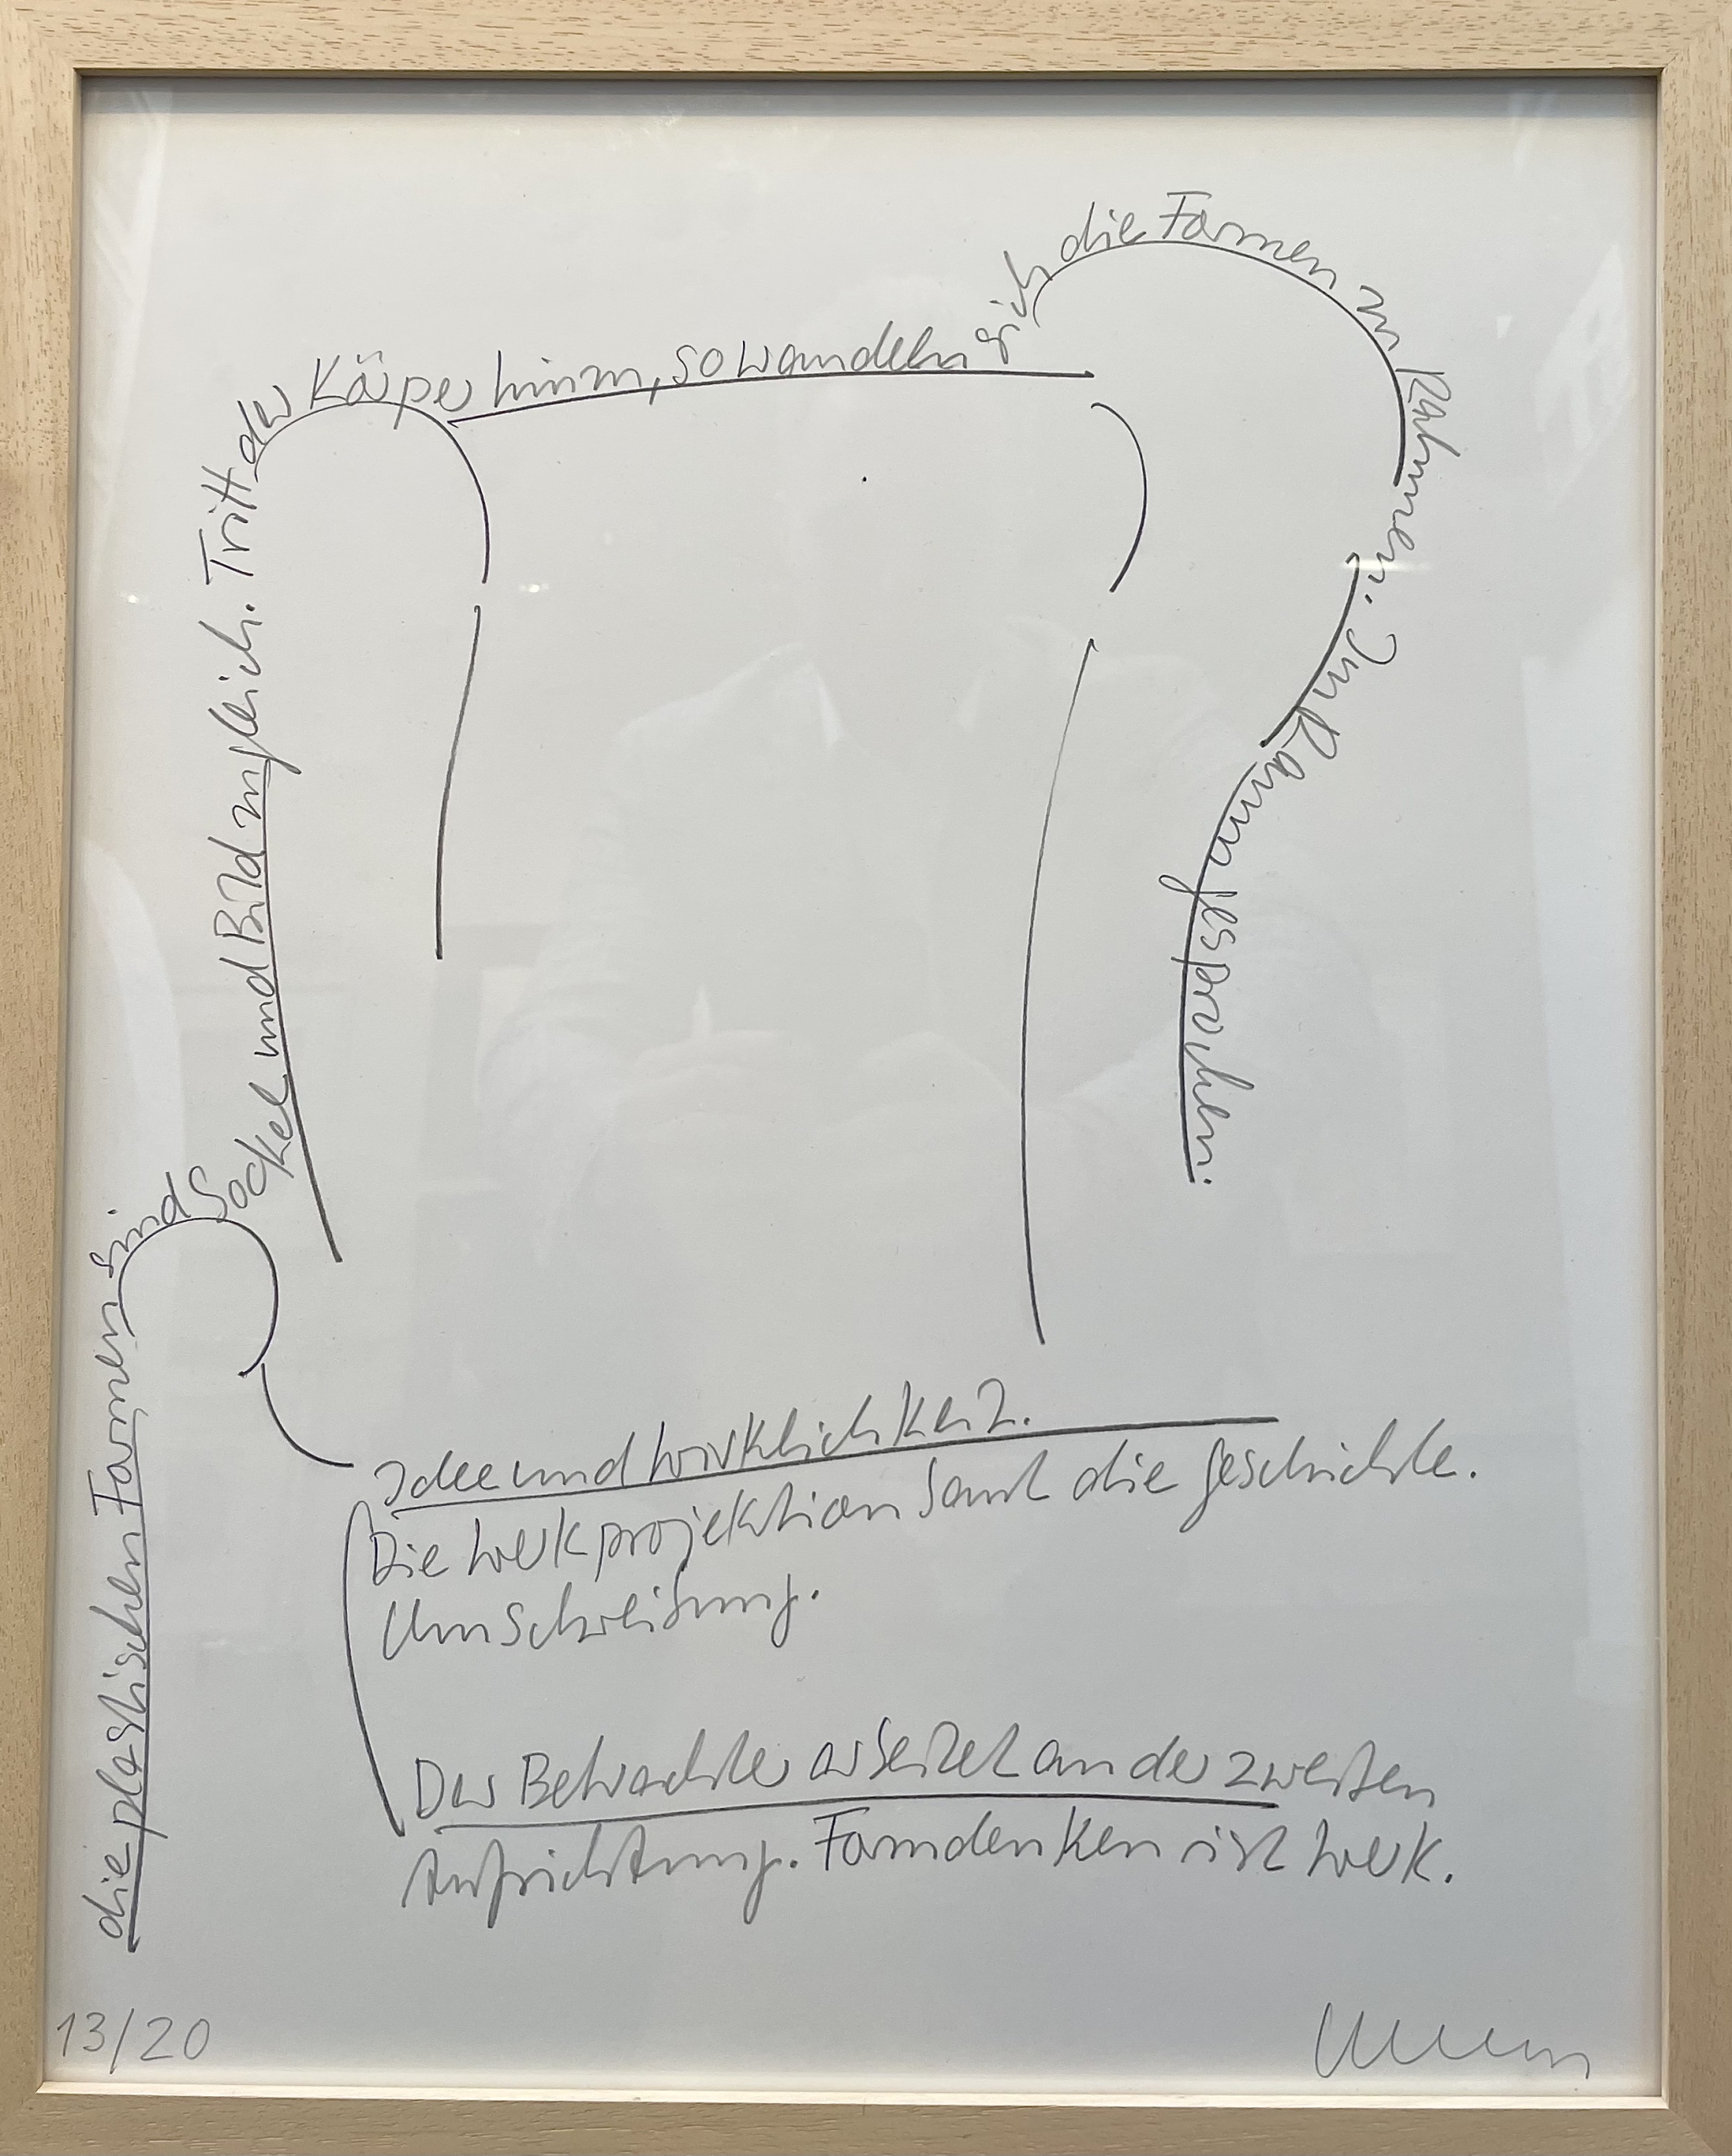 die plastischen Formen sind Sockel und Bild zugleich. Tritt der Körper hinzu, so wandeln sich die Formen zu Rahmen. Im Raum gesprochen:
Idee und Wirklichkeit.
Die Werkprojektion samt die geschichtl.
Umschreibung.
Der Betrachter arbeitet an der zweiten
Aufrichtung. Formdenken ist Werk.
13/20